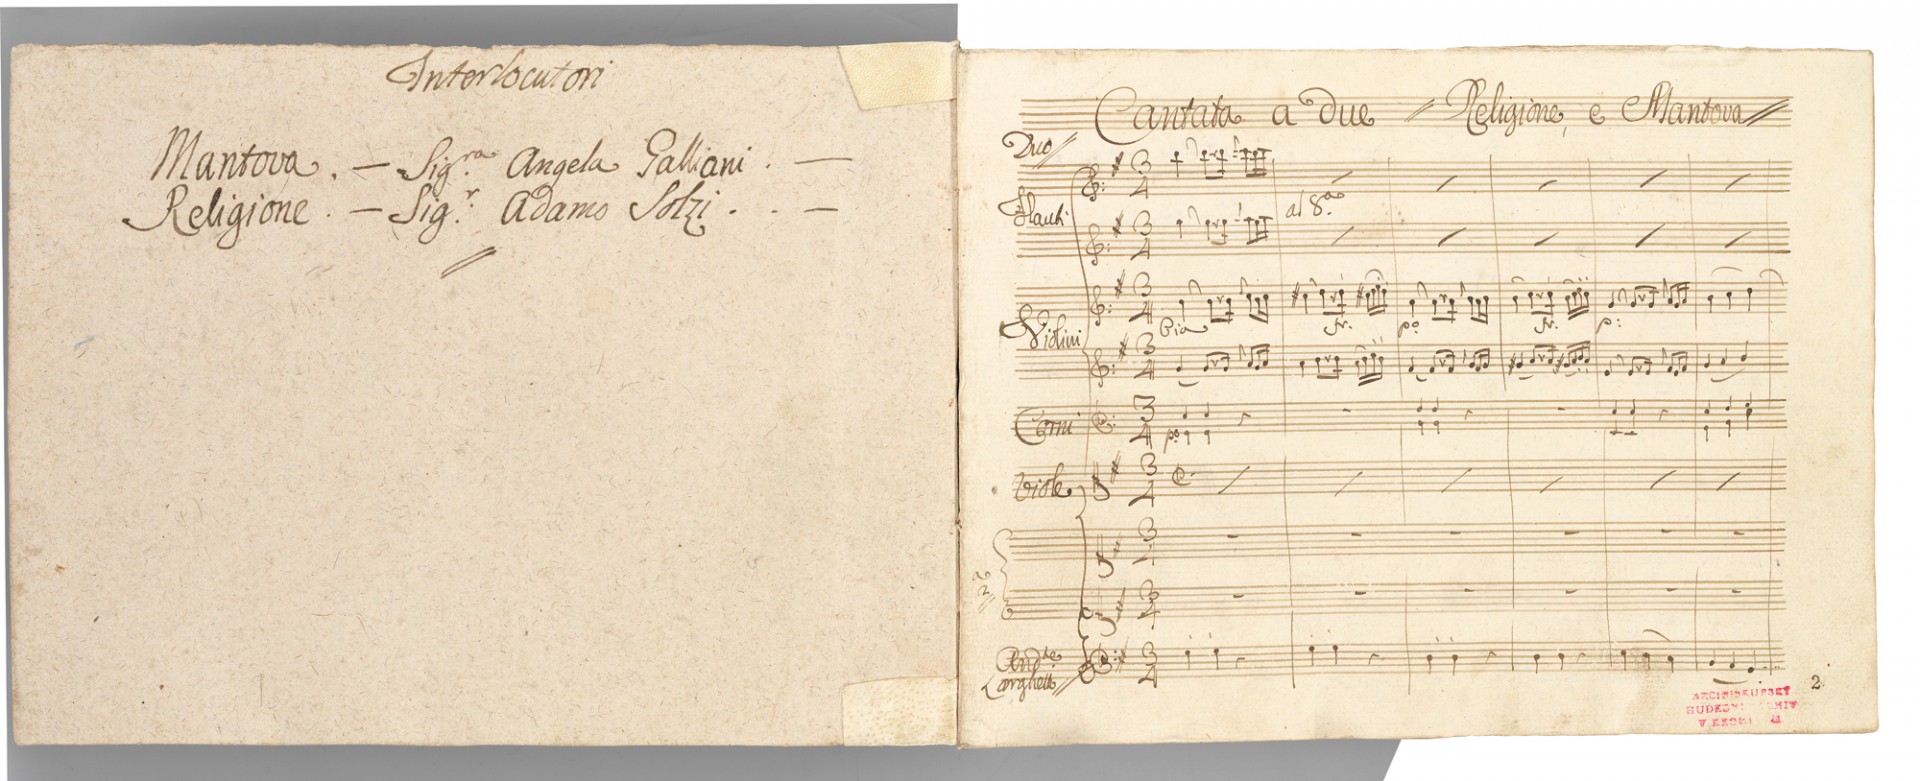 Interlocutori
Mantova. — Sig.ra Angela Galliani. —
Religione. — Sig.r Adamo Solzi. . —
Cantata a due // Religione, e Mantova //
Duo //
Flauti
al 8.va
Violini
Pia
fr. po: fr. p:
Corni
po:
Viole
a 2 //
And.te
Larghetto //
2.
ARCIBISKUPSKÝ
HUDEBNÍ ARCHIV
V KROMĚŘÍŽI